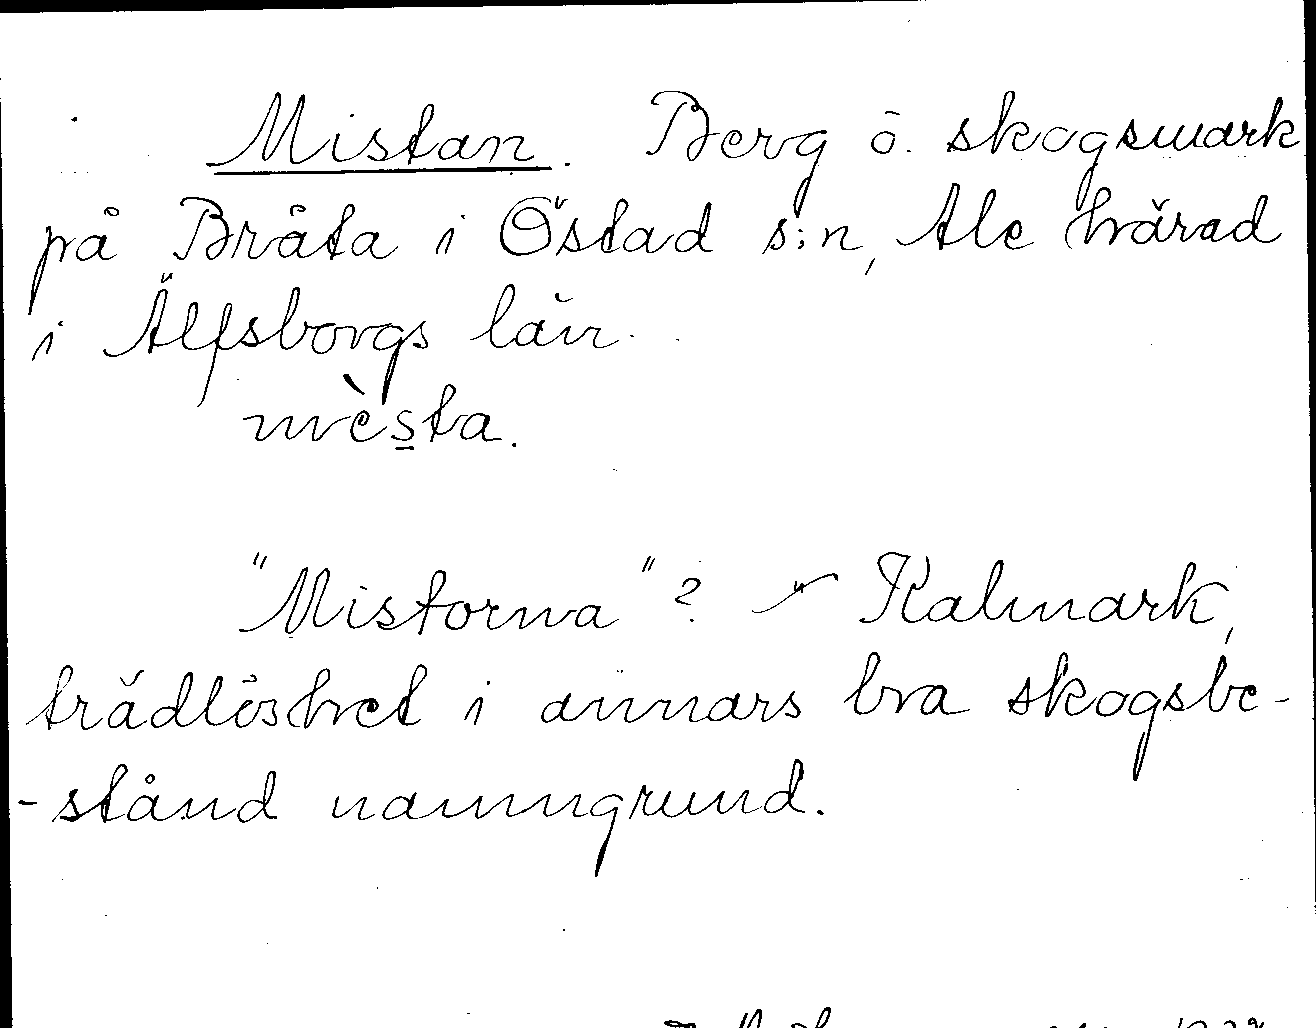 Mistan. Berg ö. skogsmark
på Bråta i Östad s:n, Ale härad
i Älfsborgs län.
mèsta.
"Mistorna"? Kalmark,
trädlöshet i annars bra skogsbe-
-stånd namngrund.